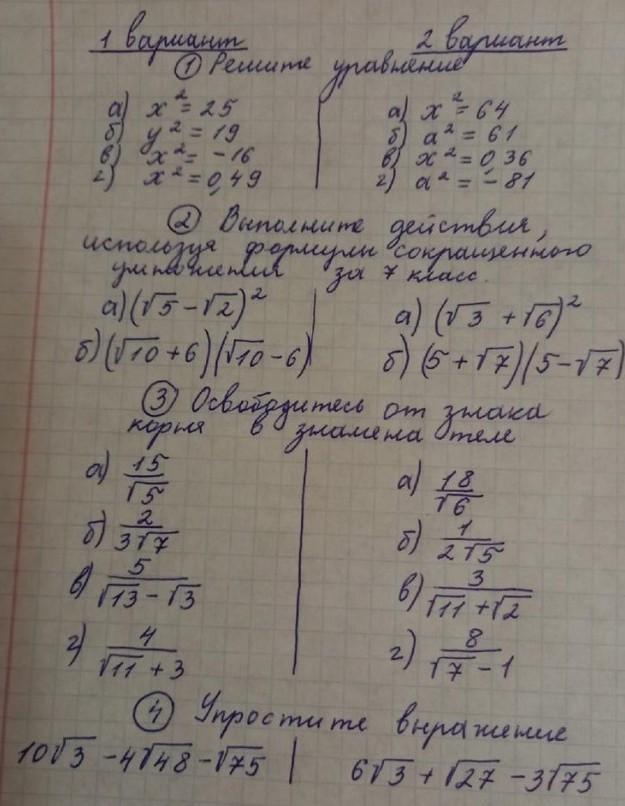 1 вариант 2 вариант
① Решите уравнение
а) x² = 25 а) x² = 64
б) y² = 19 б) a² = 61
в) x² = -16 в) x² = 0,36
г) x² = 0,49 г) a² = -81
② Выполните действия,
используя формулы сокращенного
умножения за 7 класс.
а) (√5 - √2)² а) (√3 + √6)²
б) (√10 + 6)(√10 - 6) б) (5 + √7)(5 - √7)
③ Освободитесь от знака
корня в знаменателе
а) 15/√5 а) 18/√6
б) 2/3√7 б) 1/2√5
в) 5/√13 - √3 в) 3/√11 + √2
г) 4/√11 + 3 г) 8/√7 - 1
④ Упростите выражение
10√3 - 4√48 - √75 6√3 + √27 - 3√75